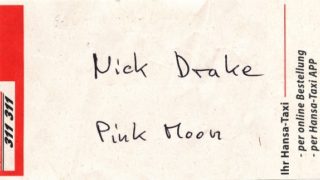 311 311
Nick Drake
Pink Moon
Ihr Hansa-Taxi
- per online Bestellung
- per Hansa-Taxi APP